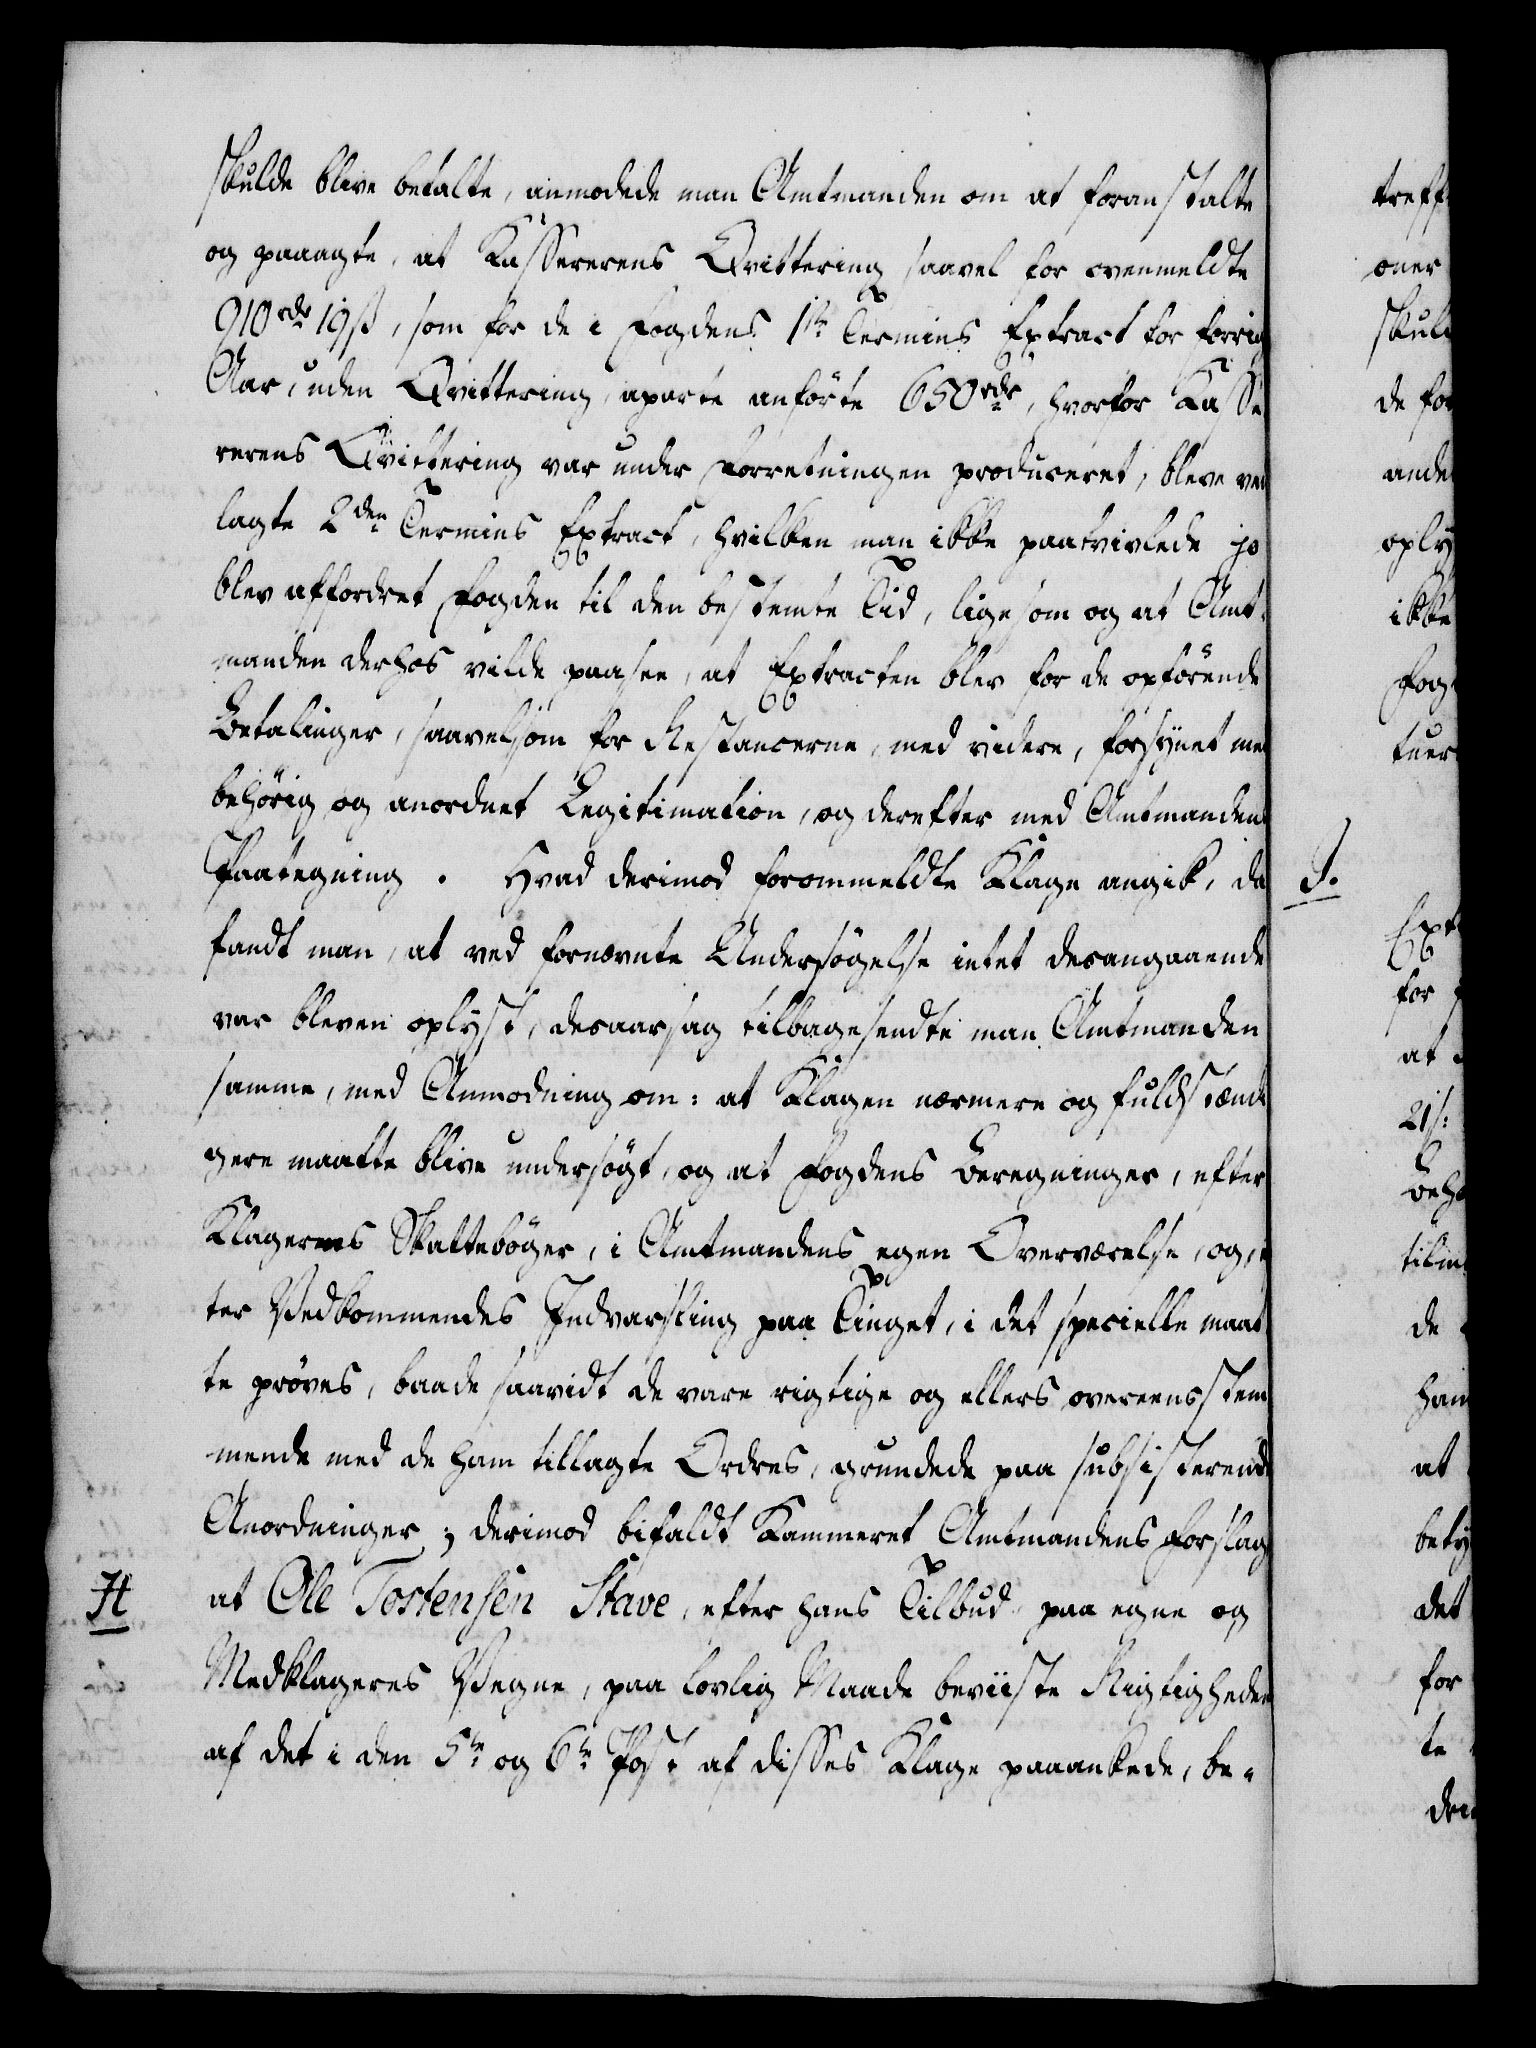 skulde blive betalte, anmodede man Amtmanden om at foranstalte
og paaagte, at Kassererens Qvittering saavel for ovenmeldte
910 rdr 19 ß, som for de i Fogdens 1ste Termins Extract for forrig
Aar, uden Qvittering, aparte anförte 650 rdr, hvorfor Kasse
rerens Qvittering var under Forretningen produceret, bleve ved
lagte 2den Termins Extract, hvilken man ikke paatvivlede jo
blev affordret Fogden til den bestemte Tid, ligesom og at Amt-
manden derhos vilde paasee, at Extracten blev for de opförende
Betalinger, saavelsom for Restancerne, med videre, forsynet med
behörig og anordnet Legitimation, og derefter med Amtmandens
Paategning. Hvad derimod forommeldte Klage angik, da
fandt man, at ved fornævnte Undersögelse intet desangaaende
var bleven oplyst, desaarsag tilbagesendte man Amtmanden
samme, med Anmodning om: at Klagen nærmere og fuldstændi
gere maatte blive undersögt, og at Fogdens Beregninger, efter
Klagernes Skattebøger, i Amtmandens egen Overværelse, og, ef
ter Vedkommendes Indvarsling paa Tinget, i det specielle maat
te pröves, baade saavidt de vare rigtige og ellers overeensstem
mende med de ham tillagte Ordres, grundede paa subsisterende
Anordninger; derimod bifaldt Kammeret Amtmandens Forslag
H at Ole Tostensen Stave, efter hans Tilbud, paa egne og
Medklageres Vegne, paa lovlig Maade beviiste Rigtigheden
af det i den 5te og 6te Post af disses Klage paaankede, be-
treff
oner
skul
de for
ande
oply
ikke
Fog
tuer
J.
Ext
for
at
21 ß:
Beh
tilm
de
ham
at
bety
det
for
te
den